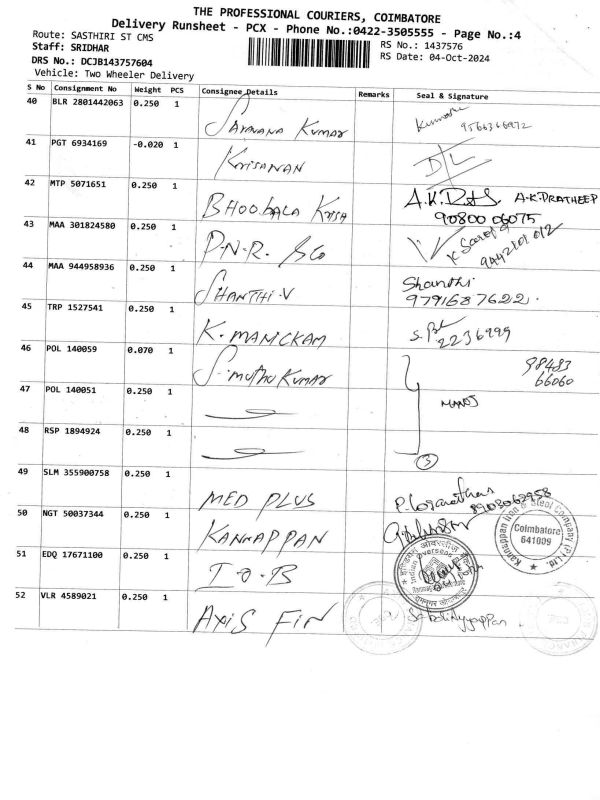 THE PROFESSIONAL COURIERS, COIMBATORE
Delivery Runsheet - PCX - Phone No.:0422-3505555 - Page No.:4
Route: SASTHIRI ST CMS
RS No.: 1437576
Staff: SRIDHAR
RS Date: 04-Oct-2024
DRS No.: DCJB143757604
Vehicle: Two Wheeler Delivery
S No Consignment No Weight PCS Consignee Details Remarks Seal & Signature
40 BLR 2801442063 0.250 1
Saravana Kumar
41 PGT 6934169 -0.020 1
Krisanan
D/L
42 MTP 5071651 0.250 1
Bhoobala Krish
A.K.PRATHEEP
90800 06075
43 MAA 301824580 0.250 1
P.N.R. & Co
44 MAA 944958936 0.250 1
Shanthi.V
Shanthi
9791687622.
45 TRP 1527541 0.250 1
K. MANICKAM
2236999
46 POL 140059 0.070 1
S. Muthu Kumar
98483
66060
47 POL 140051 0.250 1
48 RSP 1894924 0.250 1
3
49 SLM 355900758 0.250 1
MED PLUS
50 NGT 50037344 0.250 1
KANNAPPAN
Kannappan Iron & Steel Company (P) Ltd.
Coimbatore
641009
51 EDQ 17671100 0.250 1
I.O.B
Indian Overseas
52 VLR 4589021 0.250 1
AXIS FIN